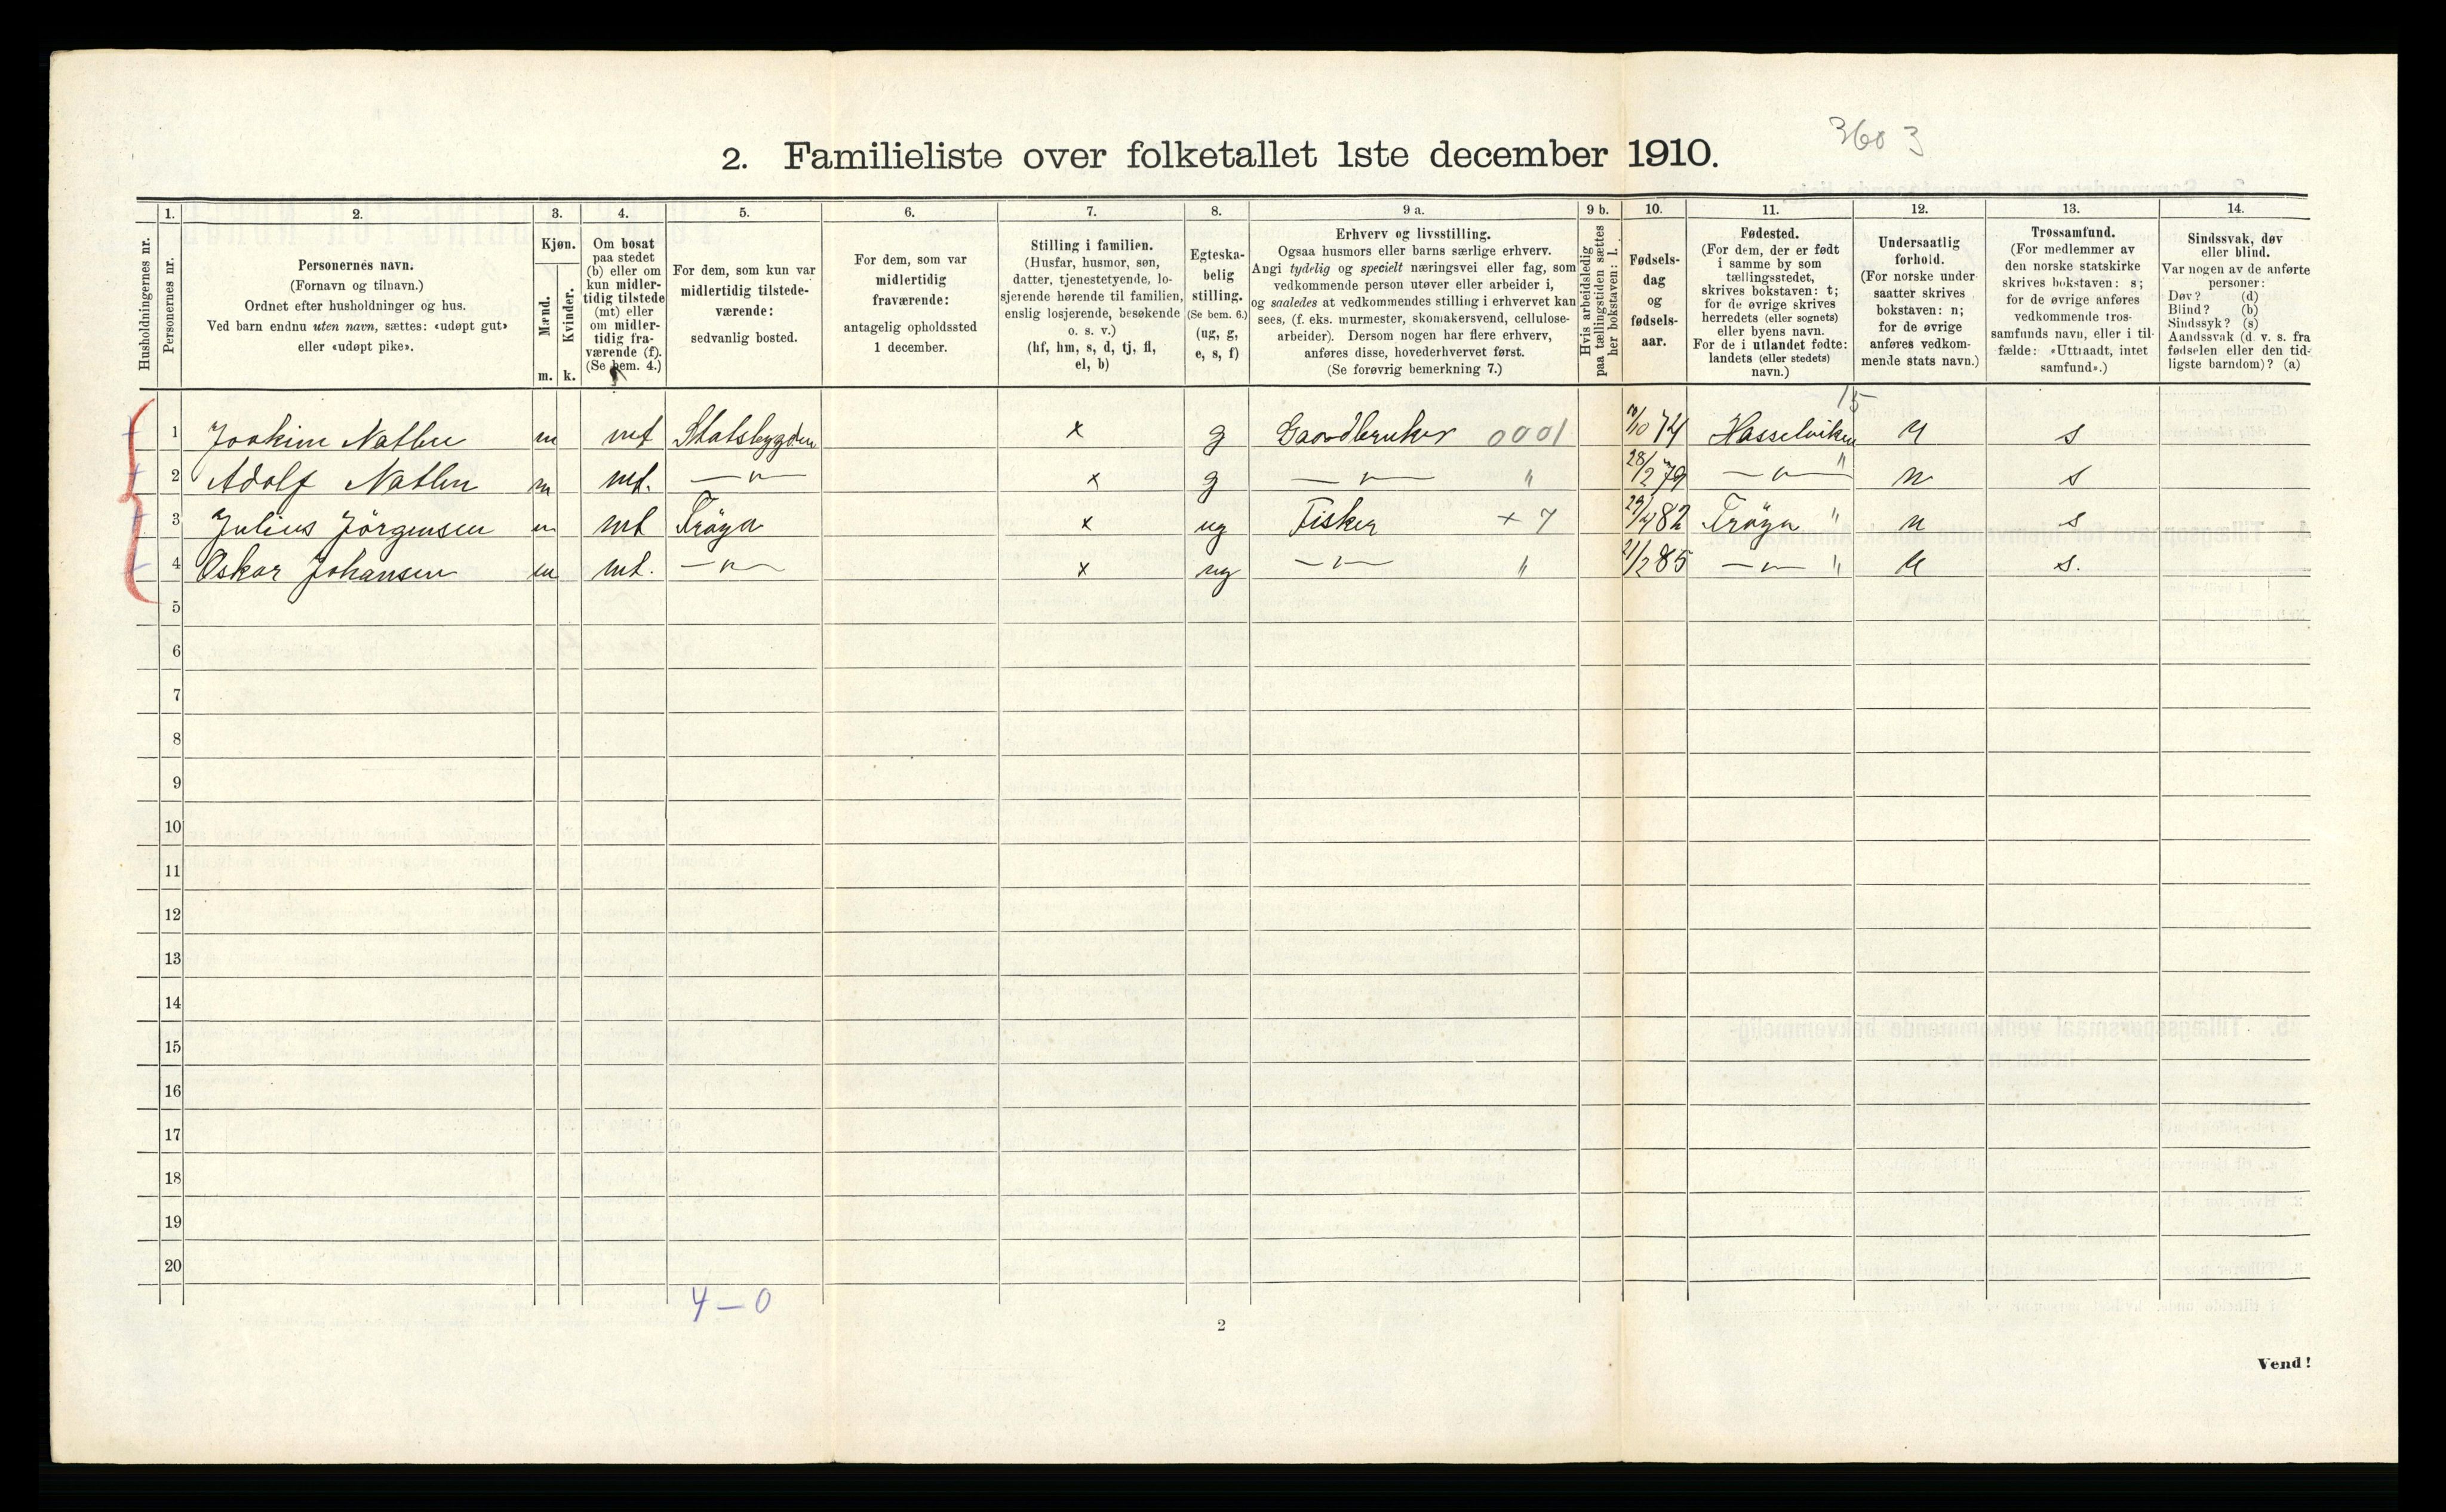 3603
2. Familieliste over folketallet 1ste december 1910.
Husholdningernes nr.
1.
Personernes nr.
2.
Personernes navn.
(Fornavn og tilnavn.)
Ordnet efter husholdninger og hus.
Ved barn endnu uten navn, sættes: «udøpt gut»
eller «udøpt pike».
3.
Kjøn.
Mænd.
Kvinder.
m. k.
4.
Om bosat
paa stedet
(b) eller om
kun midler-
tidig tilstede
(mt) eller
om midler-
tidig fra-
værende (f).
(Se bem. 4.)
5.
For dem, som kun var
midlertidig tilstede-
værende:
sedvanlig bosted.
6.
For dem, som var
midlertidig
fraværende:
antagelig opholdssted
1 december.
7.
Stilling i familien.
(Husfar, husmor, søn,
datter, tjenestetyende, lo-
sjerende hørende til familien,
enslig losjerende, besøkende
o. s. v.)
(hf, hm, s, d, tj, fl,
el, b)
8.
Egteska-
belig
stilling.
(Se bem. 6.)
(ug, g,
e, s, f)
9 a.
Erhverv og livsstilling.
Ogsaa husmors eller barns særlige erhverv.
Angi tydelig og specielt næringsvei eller fag, som
vedkommende person utøver eller arbeider i,
og saaledes at vedkommendes stilling i erhvervet kan
sees, (f. eks. murmester, skomakersvend, cellulose-
arbeider). Dersom nogen har flere erhverv,
anføres disse, hovederhvervet først.
(Se forøvrig bemerkning 7.)
9 b.
Hvis arbeidsledig
paa tællingstiden sættes
her bokstaven: l.
10.
Fødsels-
dag
og
fødsels-
aar.
11.
Fødested.
(For dem, der er født
i samme by som
tællingsstedet,
skrives bokstaven: t;
for de øvrige skrives
herredets (eller sognets)
eller byens navn.
For de i utlandet fødte:
landets (eller stedets)
navn.)
12.
Undersaatlig
forhold.
(For norske under-
saatter skrives
bokstaven: n;
for de øvrige
anføres vedkom-
mende stats navn.)
13.
Trossamfund.
(For medlemmer av
den norske statskirke
skrives bokstaven: s;
for de øvrige anføres
vedkommende tros-
samfunds navn, eller i til-
fælde: «Uttraadt, intet
samfund».)
14.
Sindssvak, døv
eller blind.
Var nogen av de anførte
personer:
Døv? (d)
Blind? (b)
Sindssyk? (s)
Aandssvak (d. v. s. fra
fødselen eller den tid-
ligste barndom)? (a)
15
1 Joakim m mt Statsbygden x g Gaardbruker 0001 10/10 74 Hasselviken n s
2 Adolf m mt. —"— x g —"— " 28/2 79 —"— " n s
3 Julius Jörgensen m mt Fröya x ug Fisker x 7 29/4 82 Fröya " n s
4 Oskar Johansen m mt. —"— x ug —"— " 21/2 85 —"— " n s.
5
6
7
8
9
10
11
12
13
14
15
16
17
18
19
20
4 – 0
2
Vend!